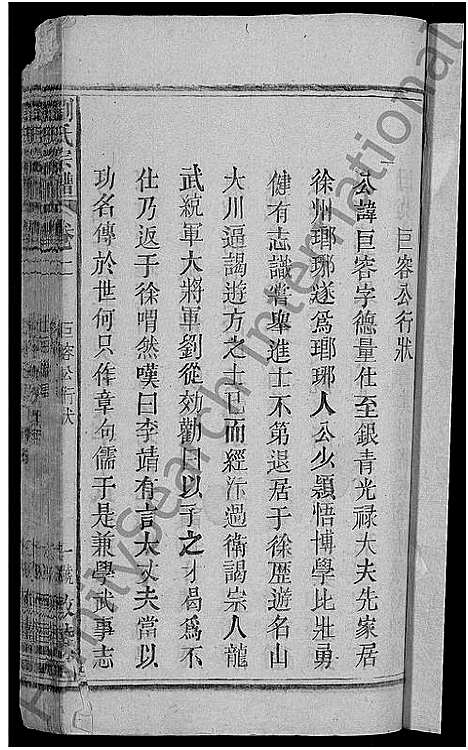 巨容公行狀
公諱巨容字德量仕至銀青光禄大夫先家居
徐州瑯琊遂爲瑯琊人公少穎悟博學比壯勇
健有志識嘗舉進士不第退居于徐歷遊名山
大川遍謁遊方之士已而經汴過衛謁崇人龍
武統軍大將軍劉從効勸曰以子之才曷爲不
仕乃返于徐喟然嘆曰李靖有言大丈夫當以
功名傳於世何只作章句儒于是兼學武事志
劉氏宗譜
巨容公行狀
FamilySearch International